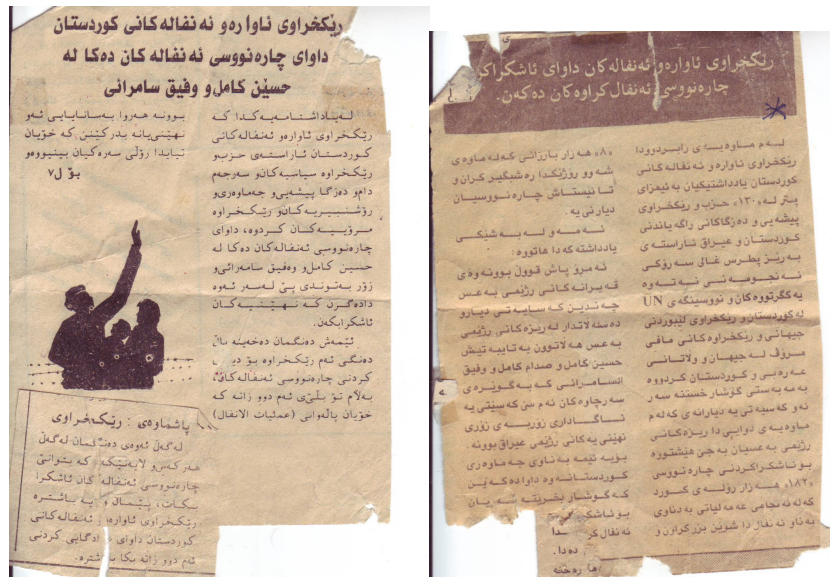 رێکخراوی ئاوارەو ئەنفالەکانی کوردستان
داوای چارەنووسی ئەنفالەکان دەکا لە
حسێن کامل و وفیق سامرائی
لەیاداشتنامەیەکدا کە
رێکخراوی ئاوارەو ئەنفالەکانی
کوردستان ئاراستەی حزب و
رێکخراوە سیاسیەکان و سەرجەم
دام و دەزگا پیشەیی و جەماوەری و
رۆشنبیریەکان و رێکخراوە
مرۆییەکان کردوە، داوای
چارەنووسی ئەنفالەکان دەکا لە
حسین کامل و وەفیق سامەرائی و
زۆر بەتوندی پێ لەسەر ئەوە
دادەگرن کە نهێنیەکان
ئاشکرابکەن.
ئێمەش دەنگمان دەخەینە پاڵ
دەنگی ئەم رێکخراوە بۆ
کردنی چارەنووسی ئەنفالەکان،
بەڵام تۆ بڵێی ئەم دوو زاتە کە
خۆیان پاڵەوانی (عملیات الانفال)
بوونە هەروا بەسانایایی ئەو
نهێنیانە بدرکێنن کە خۆیان
تیایدا رۆڵی سەرەکیان بینیووەو
بۆ ل٧
پاشماوەی : رێکخراوی
لەگەڵ ئەوەی دەنگمان لەگەڵ
هەرکەس و لایەنێکە کە بتوانێ
چارەنووسی ئەنفالەکان ئاشکرا
بکات، پێمان وایە باشترە
رێکخراوی ئاوارەو ئەنفالەکانی
کوردستان داوای دادگایی کردنی
ئەم دوو زاتە بکا باشترە.
رێکخراوی ئاوارەو ئەنفالەکان داوای ئاشکراکر
چارەنووسی ئەنفال کراوەکان دەکەن.
لەم ماوەیەی رابردوودا
رێکخراوی ئاوارەو ئەنفالەکانی
کوردستان یادداشتێکیان بە ئیمزای
پتر لە «١٣٠» حزب و رێکخراوی
پیشەیی و دەزگاکانی راگەیاندنی
کوردستان و عیراق ئاراستەی
بەرێز پطرس غالی سەرۆکی
ئەنجومەنی نەتەوە
یەکگرتووەکان و نووسینگەی UN
لە کوردستان و رێکخراوی لێبوردنی
جیهانی و رێکخراوەکانی مافی
مرۆڤ لە جیهان و ولاتانی
عەرەبی و کوردستان کردووە
بە مەبەستی گوشار خستنە سەر
ئەو کەسێتی یە دیارانەی کە لەم
ماوەیەی دوایی دا ریزەکانی
رژێمی بەعسیان بەجێ هێشتووە
بۆ ئاشکراکردنی چارەنووسی
«١٨٢» هەزار رۆلەی کورد
کە لە ئەنجامی عەمەلیاتی بەدناوی
بەناو ئەنفال دا شوێن بزرکراون و
«٨» هەزار بارزانی کە لە ماوەی
شەو و رۆژێکدا رەشبگیر کران و
تا ئێستاش چارەنووسیان
دیارنی یە.
ئەمەو لە بەشێکی
یادداشتەکەدا هاتووە:
ئەمرۆ پاش قوول بوونەوەی
قەیرانەکانی رژێمی بەعس
چەندین کەسایەتی دیارو
دەسەلاتدار لە ریزەکانی رژێمی
بەعس هەلاتوون بە تایبەتیش
حسین کامل و صدام کامل و وفیق
السامرائی کە بە گوێرەی
سەرچاوەکان ئەم سێ کەسێتی یە
ئاگاداری زۆربەی زۆری
نهێنی یەکانی رژێمی عیراق بوونە.
بۆیە ئێمە بەناوی جەماوەری
کوردستانەوە داوادەکەین
کە گوشار بخرێتە سەریان
بۆ ئاشکرا
ئەنفال کر
دەدا.